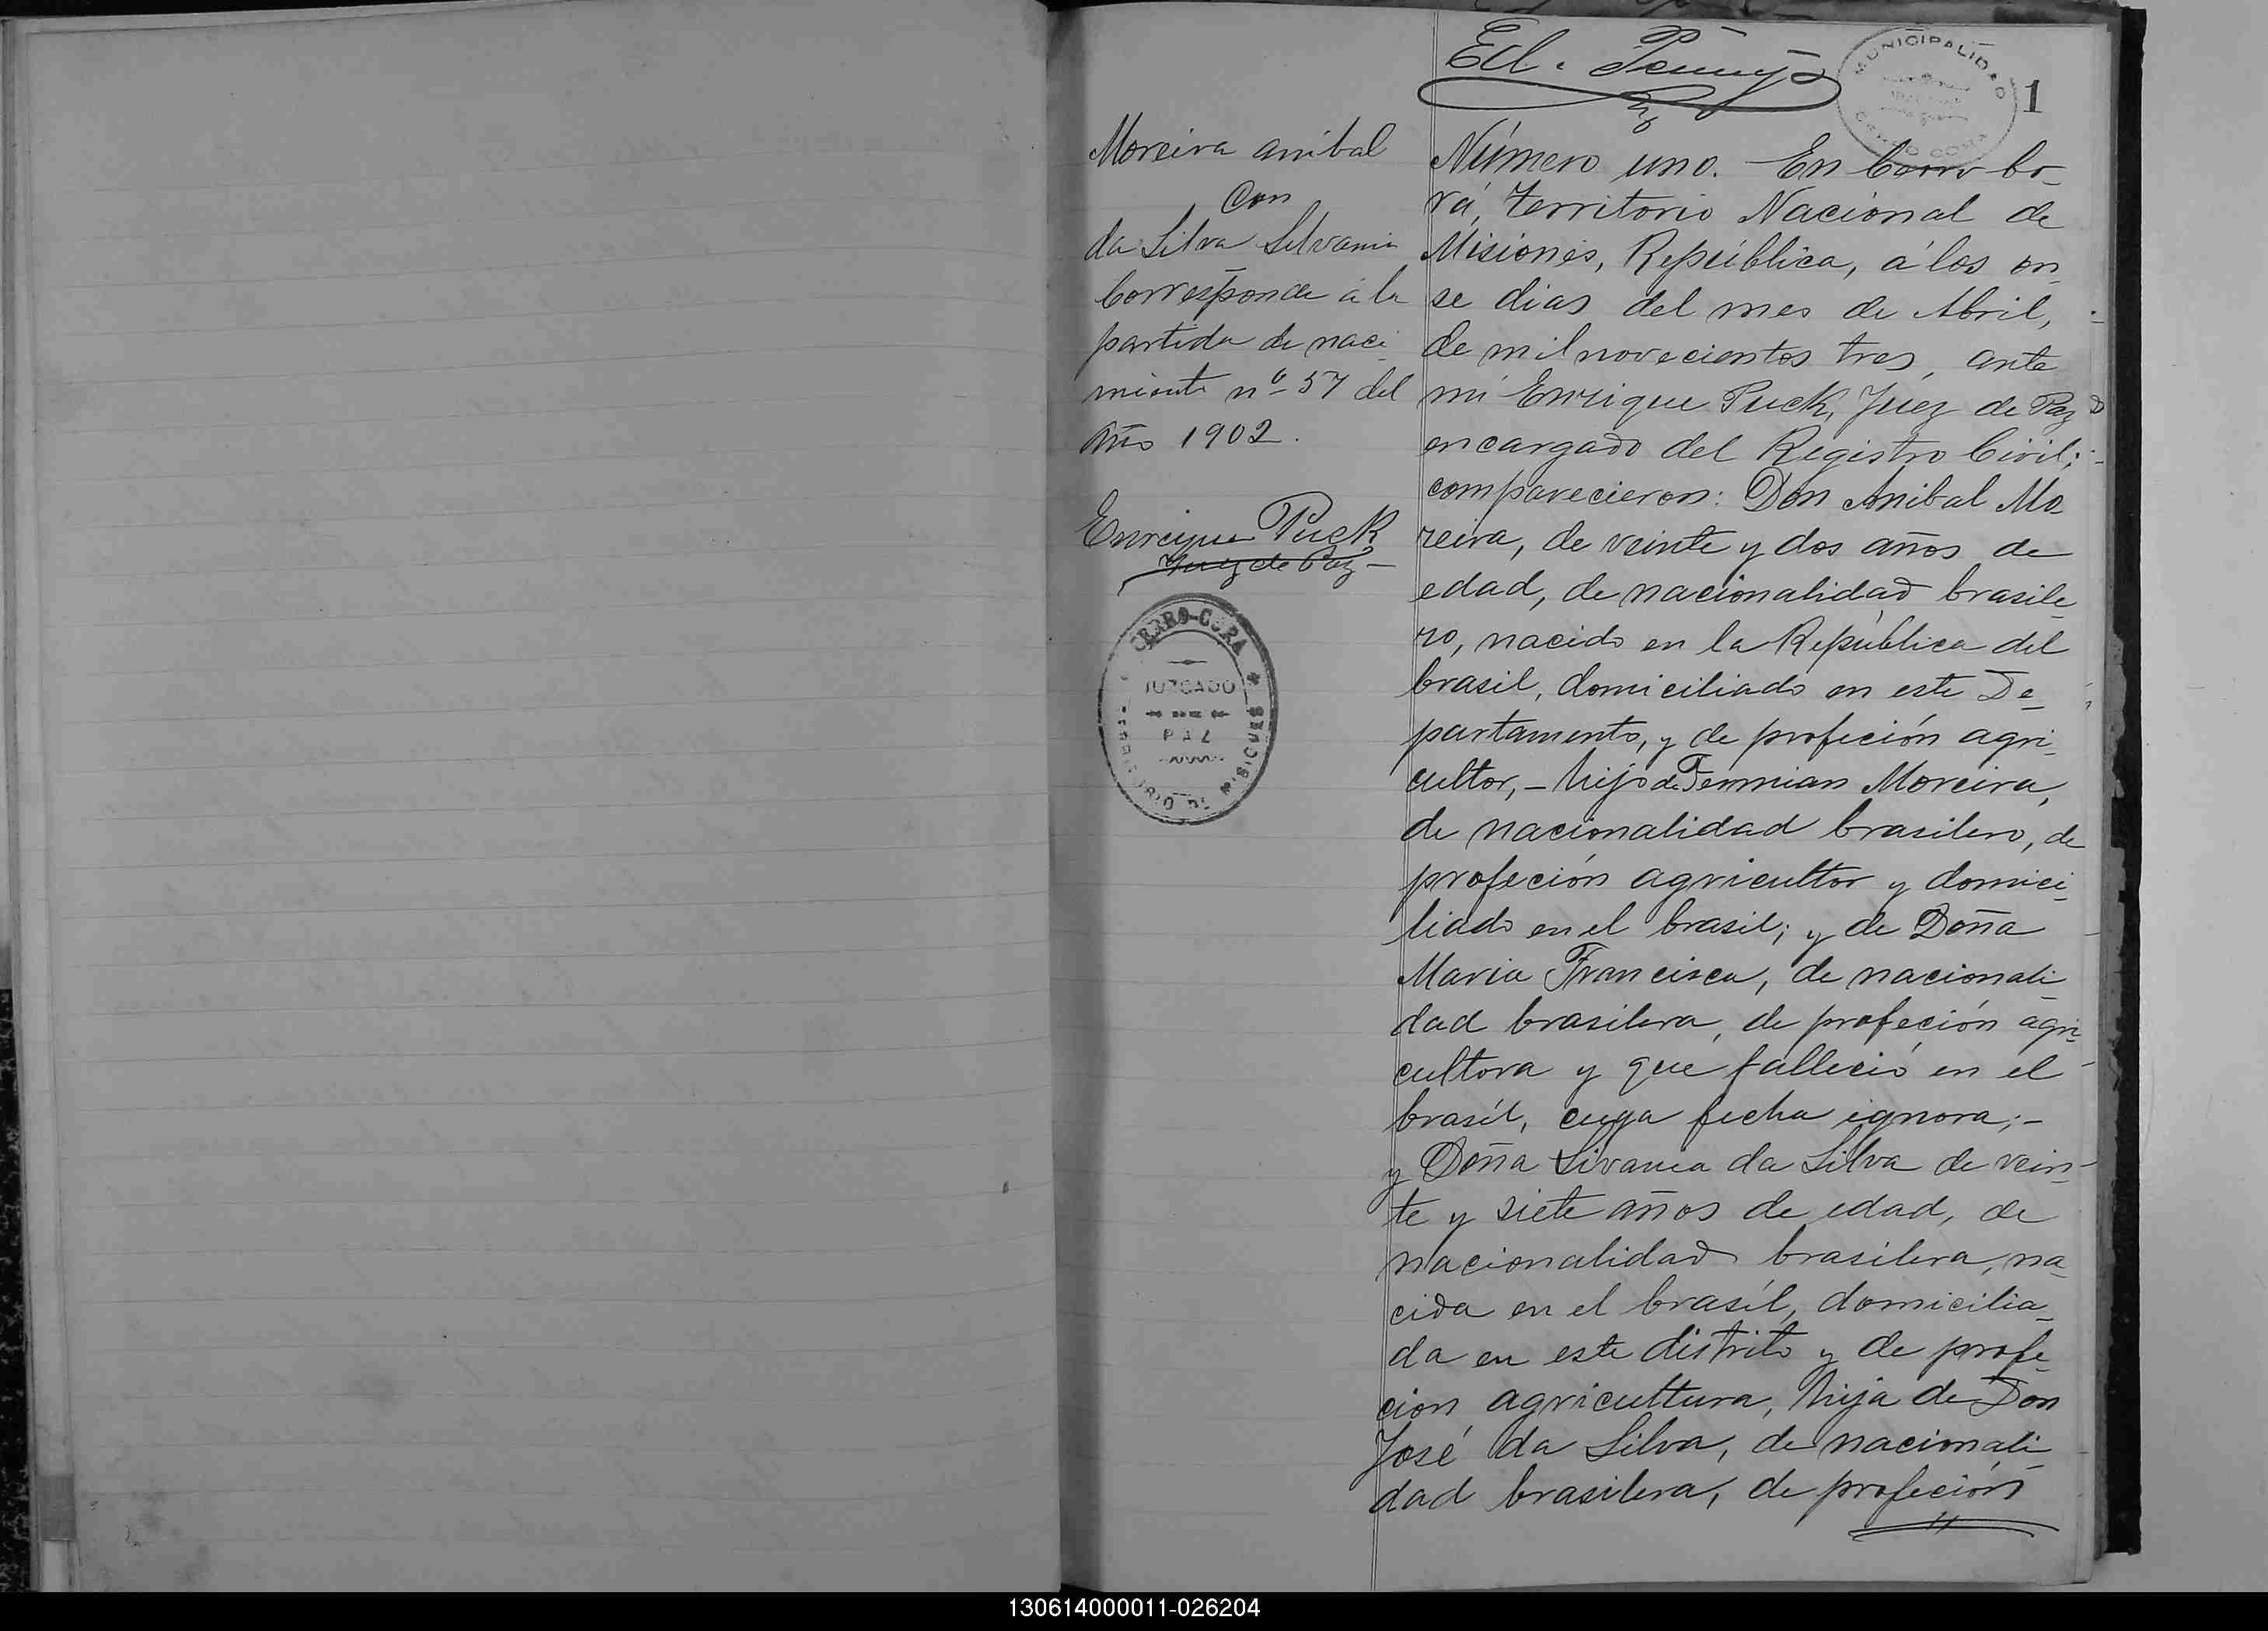 Ed. Penny
MUNICIPALIDAD
CERRO CORA
1
Moreira anibal
Con
da Silva Silvania
Corresponde á la
partida de naci
miento nº 57 del
Año 1902.
Enrique Puck
Juez de Paz
CERRO-CORA
JUZGADO
DE
PAZ
TERRITORIO DE MISIONES
Número uno. En Cerro Co-
rá, Territorio Nacional de
Misiones, República, á los on-
se dias del mes de Abril,
de mil novecientos tres, ante
mi Enrique Puck, Juez de Paz
encargado del Registro Civil;
comparecieron: Don Anibal Mo-
reira, de veinte y dos años de
edad, de nacionalidad brasile
ro, nacido en la República del
brasil, domiciliado en este De-
partamento, y de profeción agri-
cultor, - hijo de Moreira,
de nacionalidad brasilero, de
profeción agricultor y domici-
liado en el brasil; y de Doña
Maria Francisca, de nacionali-
dad brasilera, de profeción agri-
cultora y que falleció en el
brasil, cuya fecha ignora; -
y Doña Livania da Silva de vein-
te y siete años de edad, de
nacionalidad brasilera, na-
cida en el brasil, domicilia-
da en este distrito y de profe-
cion agricultura, hija de Don
José da Silva, de nacionali-
dad brasilera, de profeción
130614000011-026204